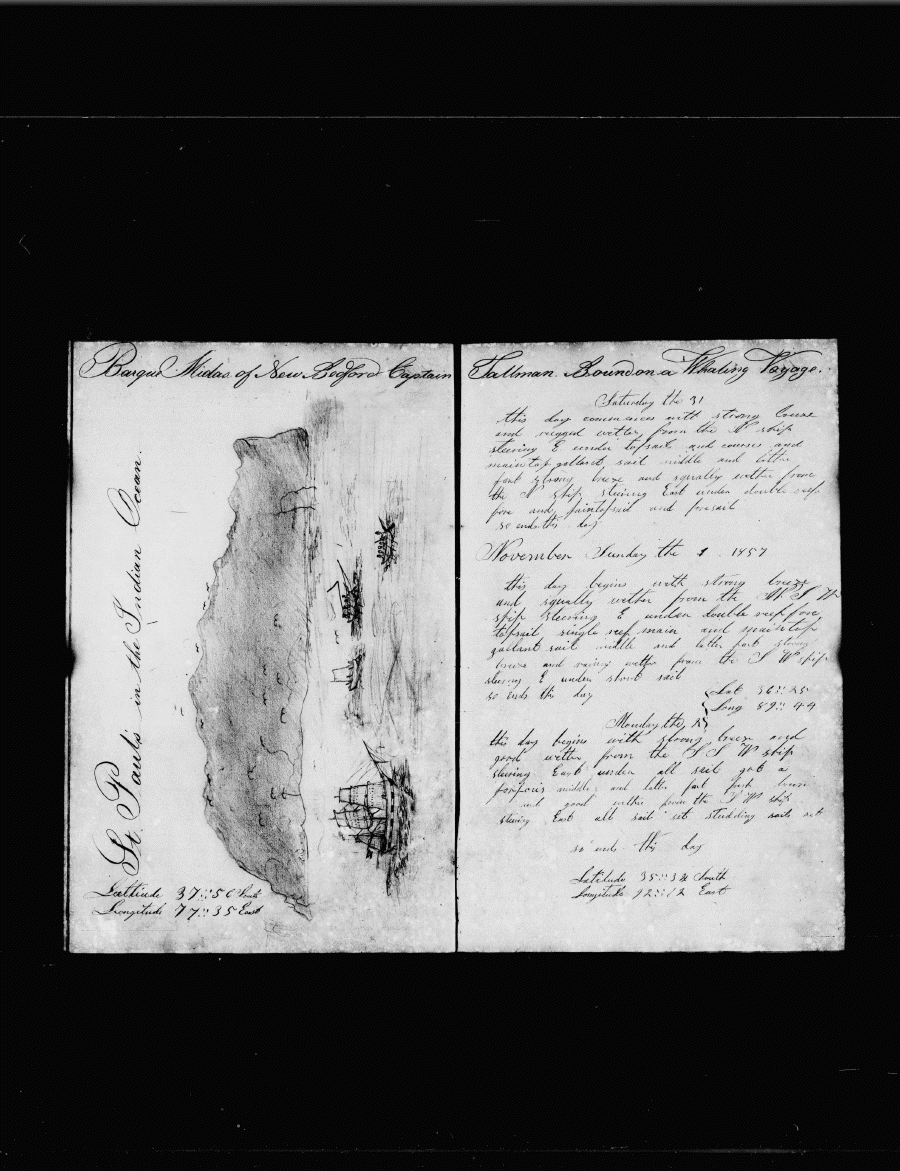 Barque Midas of New Bedford Captain
St. Pauls in the Indian Ocean.
Lattitude 37::56 South
Longitude 77::35 East
Tallman Bound on a Whaling Voyage.
Saturday the 31
this day commences with strong breeze
and rugged wether from the N ship
steering E under topsail and courses and
maintop gallant sail middle and latter
part strong breeze and squally wether from
the N ship steering East under double reef
fore and maintopsail and foresail
so ends this day
November Sunday the 1 1857
this day begins with strong breeze
and squally wether from the W S W
ship steering E under double reef fore
topsail single reef main and maintop
gallant sail middle and latter part strong
breeze and rainy wether from the S W ship
steering E under short sail
so ends this day
Lat 36::25
Long 89::44
Monday the 2
this day begins with strong breeze and
good wether from the S S W ship
steering East under all sail got a
porpois middle and latter part fresh breeze
and good wether from the S W ship
steering East all sail set studding sails set
so ends this day
Latitude 35::38 South
Longitude 92::12 East